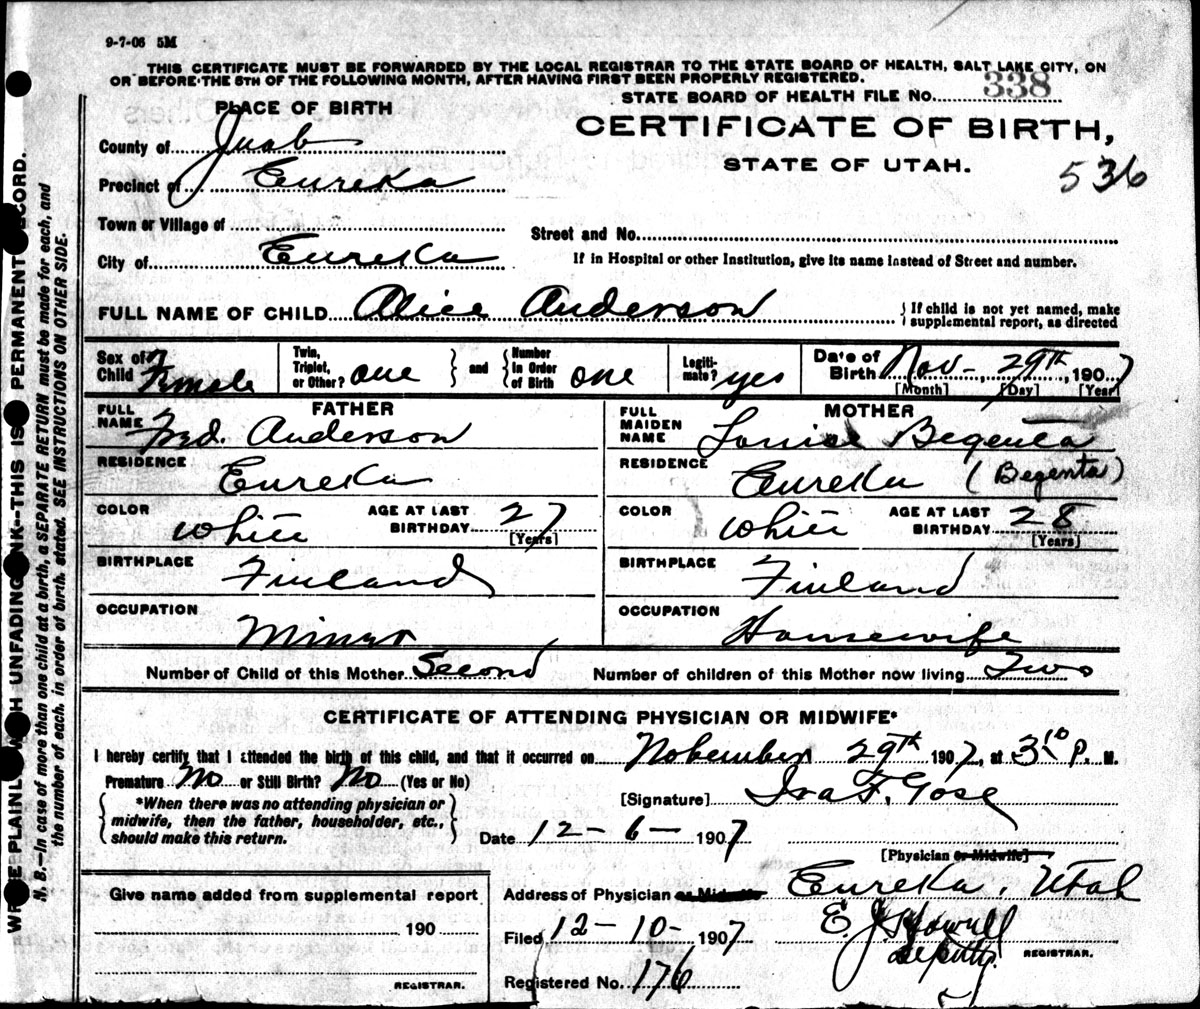 9-7-06 5M
THIS CERTIFICATE MUST BE FORWARDED BY THE LOCAL REGISTRAR TO THE STATE BOARD OF HEALTH, SALT LAKE CITY, ON
OR BEFORE THE 5TH OF THE FOLLOWING MONTH, AFTER HAVING FIRST BEEN PROPERLY REGISTERED.
STATE BOARD OF HEALTH FILE No. 338
PLACE OF BIRTH
CERTIFICATE OF BIRTH,
STATE OF UTAH.
536
County of Juab
Precinct of Eureka
Town or Village of
Street and No.
City of Eureka
If in Hospital or other Institution, give its name instead of Street and number.
FULL NAME OF CHILD Alice Anderson
{ If child is not yet named, make
supplemental report, as directed
Sex of Child Female
Twin, Triplet, or Other? one } and { Number in Order of Birth one
Legitimate? yes
Date of Birth Nov- 29th, 1907
[Month] [Day] [Year]
FATHER
FULL NAME Fred. Anderson
RESIDENCE Eureka
COLOR White AGE AT LAST BIRTHDAY 27
[Years]
BIRTHPLACE Finland
OCCUPATION Miner
MOTHER
FULL MAIDEN NAME Louise Begenta
RESIDENCE Eureka (Begenta)
COLOR White AGE AT LAST BIRTHDAY 28
[Years]
BIRTHPLACE Finland
OCCUPATION Housewife
Number of Child of this Mother Second Number of children of this Mother now living Two
CERTIFICATE OF ATTENDING PHYSICIAN OR MIDWIFE*
I hereby certify that I attended the birth of this child, and that it occurred on November 29th 1907, at 3 10 P. M.
Premature No or Still Birth? No (Yes or No)
{ *When there was no attending physician or
midwife, then the father, householder, etc.,
should make this return. }
[Signature] Ira F. Gose
Date 12-6-1907
[Physician or Midwife]
Address of Physician or Midwife Eureka, Utah
Give name added from supplemental report
190
REGISTRAR.
Filed 12-10-1907 E. J. Howell
Deputy REGISTRAR.
Registered No. 176
WRITE PLAINLY WITH UNFADING INK--THIS IS PERMANENT RECORD.
N. B.--In case of more than one child at a birth, a SEPARATE RETURN must be made for each, and
the number of each, in order of birth, stated. SEE INSTRUCTIONS ON OTHER SIDE.